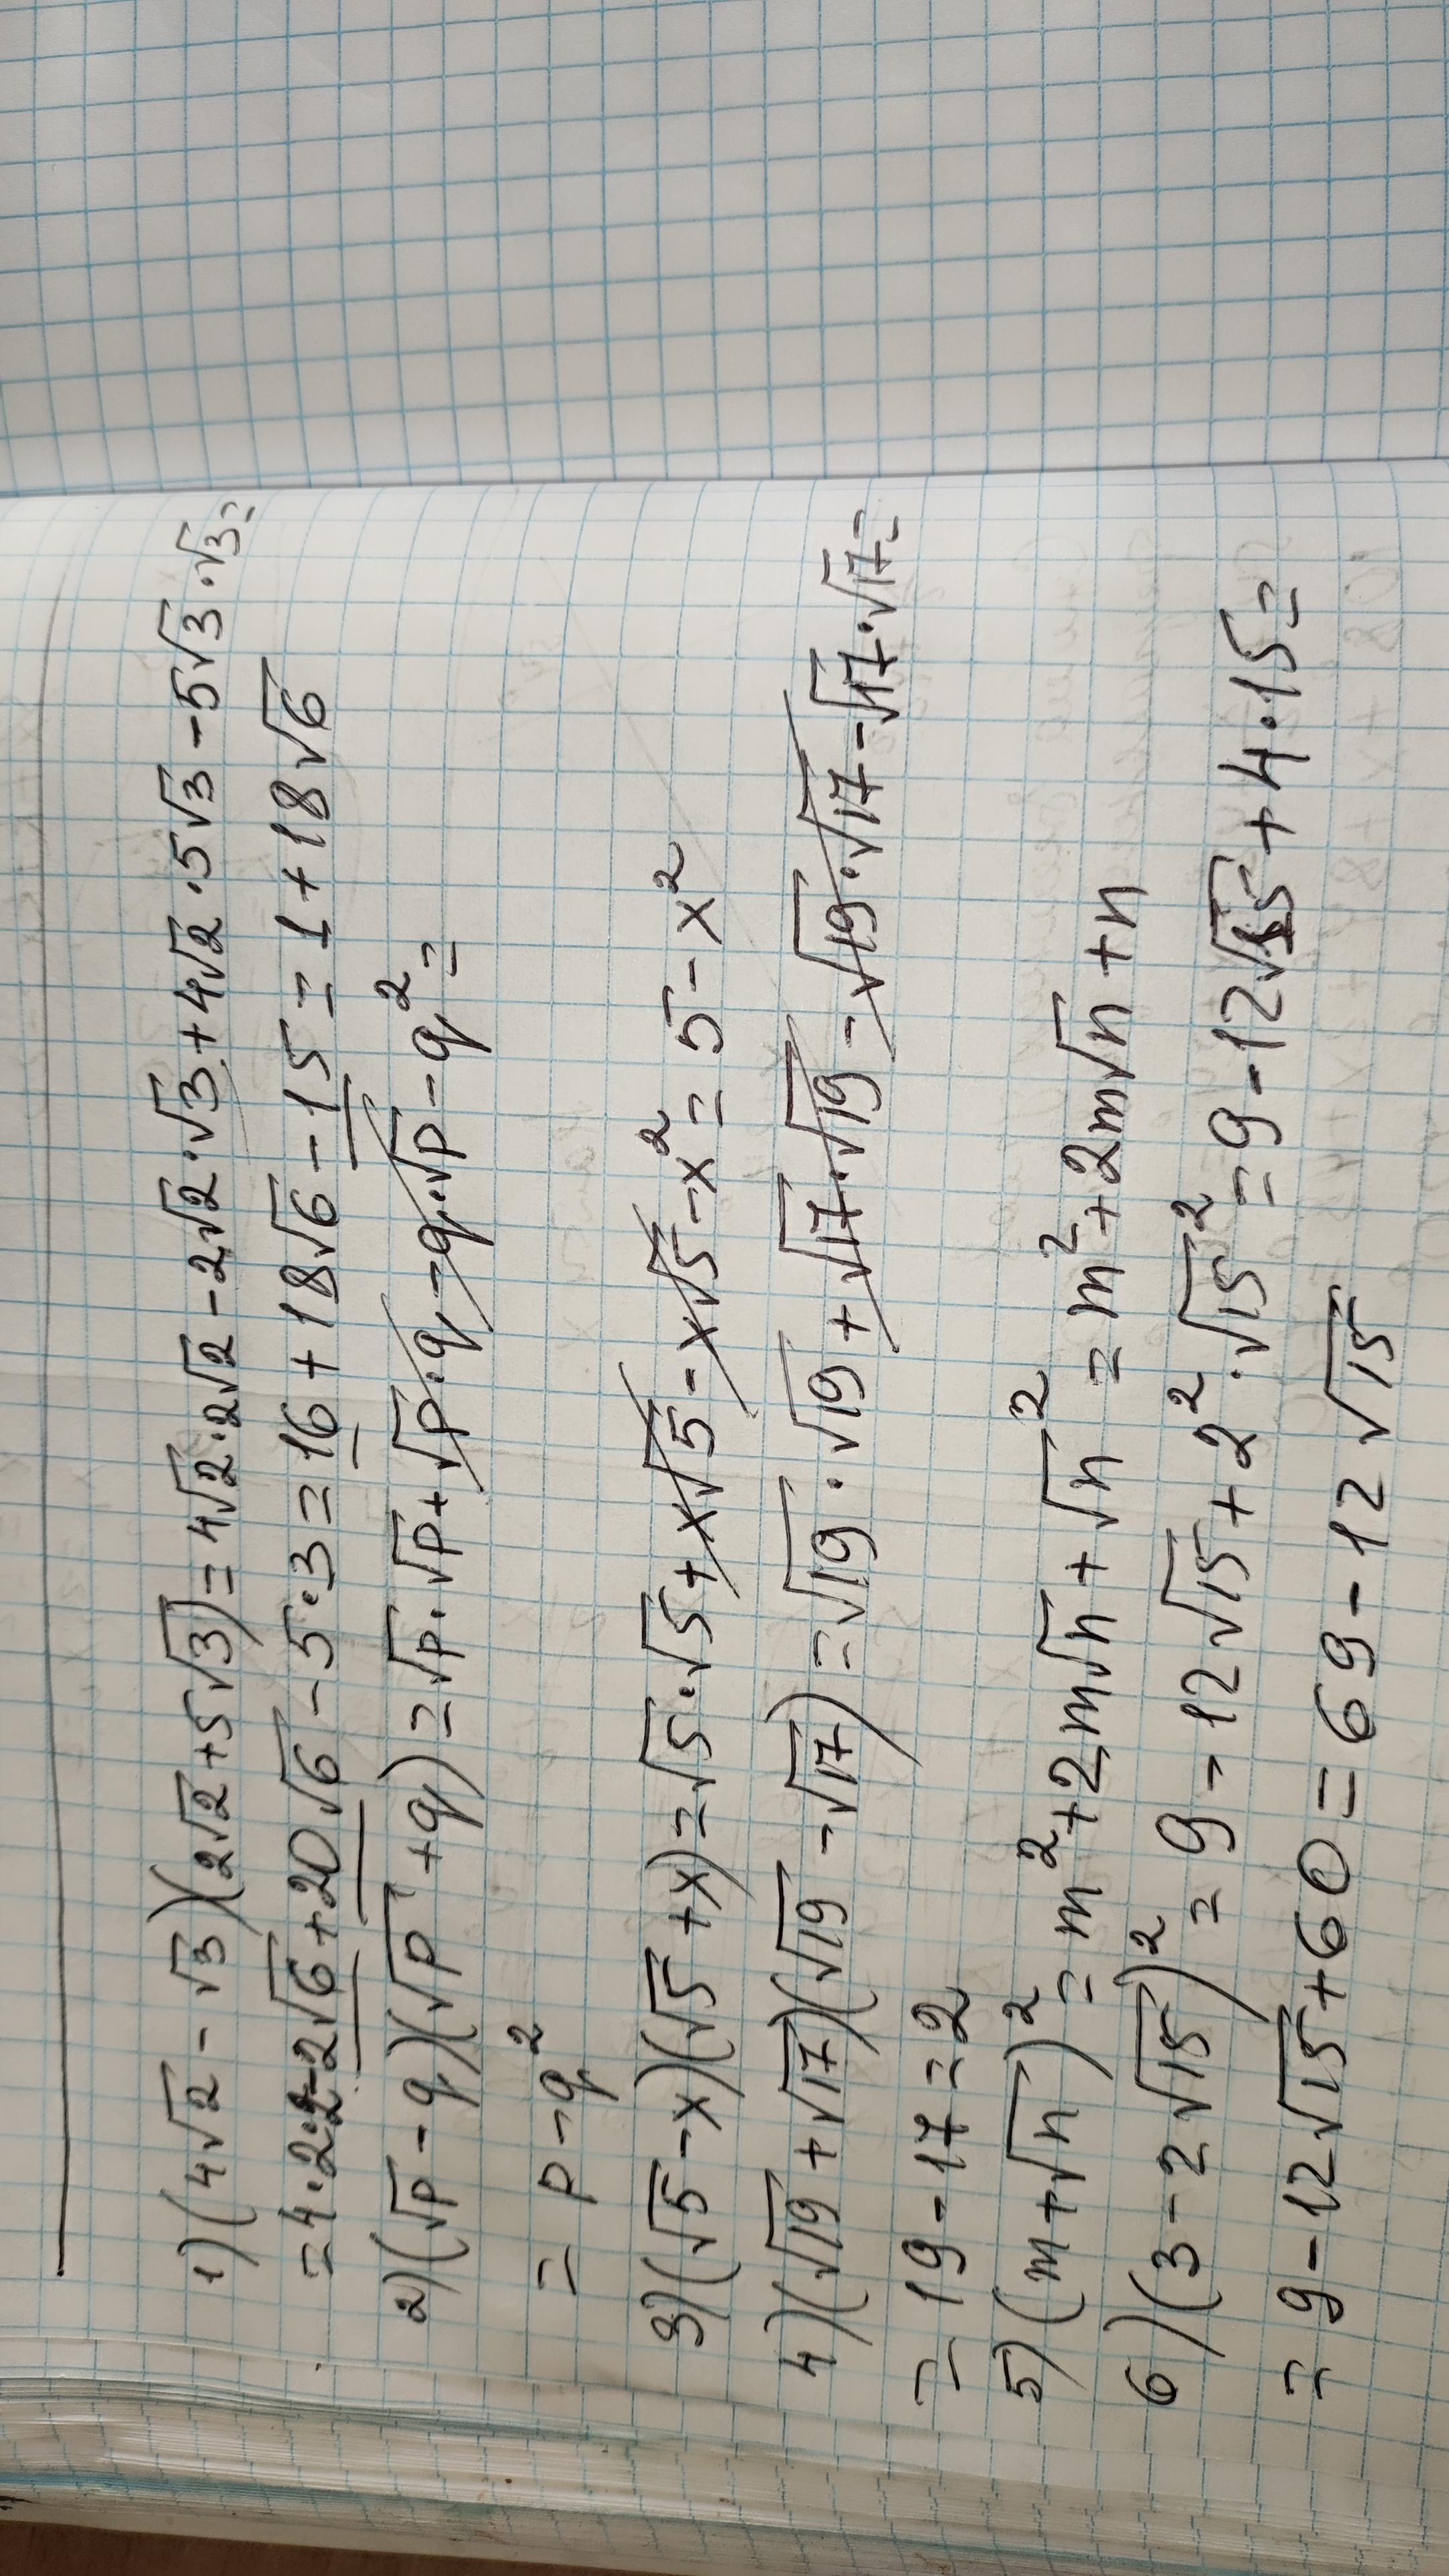 1)(4√2 - √3)(2√2+5√3)=4√2·2√2-2√2·√3+4√2·5√3-5√3·√3=
=4·2·2-2√6+20√6-5·3=16+18√6-15=1+18√6
2)(√p-q)(√p+q)=√p·√p+√p·q-q·√p-q²=
=p-q²
3)(√5-x)(√5+x)=√5·√5+x√5-x√5-x²=5-x²
4)(√19+√17)(√19-√17)=√19·√19+√17·√19-√19·√17-√17·√17=
=19-17=2
5)(m+√n)²=m²+2m√n+√n²=m²+2m√n+n
6)(3-2√15)²=9-12√15+2²·√15²=9-12√15+4·15=
=9-12√15+60=69-12√15